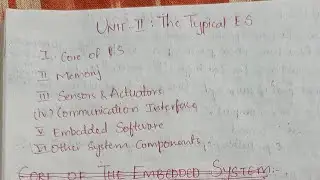 UNIT-II: The Typical ES
I. Core of ES
II Memory
III Sensors & Actuators
(IV) Communication Interface
V Embedded Software
VI Other System Components.
CORE OF THE EMBEDDED SYSTEM